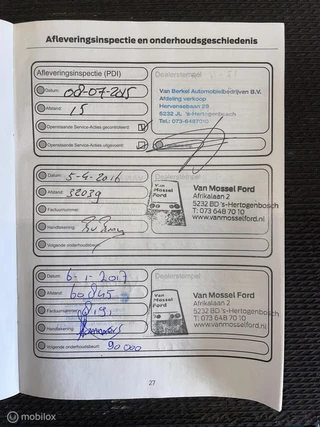 Afleveringsinspectie en onderhoudsgeschiedenis
Afleveringsinspectie (PDI)
Dealerstempel
Datum: 08-07-2015
Afstand: 15
Openstaande Service-Acties gecontroleerd:
Openstaande Service-Acties uitgevoerd:
Van Berkel Automobielbedrijven B.V.
Afdeling verkoop
Hervensebaan 29
5232 JL 's-Hertogenbosch
Tel.: 073-6487010
Datum: 5-4-2016
Afstand: 32039
Factuurnummer:
Handtekening:
Volgende onderhoudsbeurt:
Dealerstempel
Van Mossel
Van Mossel Ford
Afrikalaan 2
5232 BD 's-Hertogenbosch
T: 073 648 70 10
www.vanmosselford.nl
Datum: 6-1-2017
Afstand: 60845
Factuurnummer:
Handtekening:
Volgende onderhoudsbeurt: 90000
Dealerstempel
Van Mossel
Van Mossel Ford
Afrikalaan 2
5232 BD 's-Hertogenbosch
T: 073 648 70 10
www.vanmosselford.nl
27
© mobilox